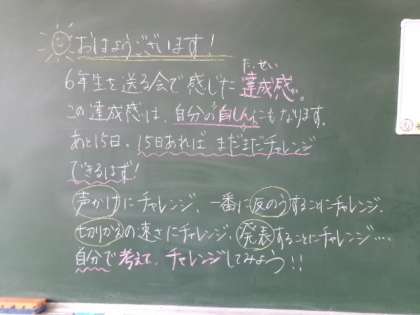 おはようございます!
たっせい
6年生を送る会で感じた達成感。
この達成感は、自分の自しんにもなります。
あと15日。15日あれば まだまだチャレンジ
できるはず!
声かけにチャレンジ、一番に反のうすることにチャレンジ、
切りかえの速さにチャレンジ、発表することにチャレンジ…。
自分で考えて、チャレンジしてみよう!!